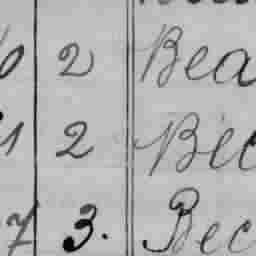 0 2 Bea
1 2 Bec
7 3. Bec